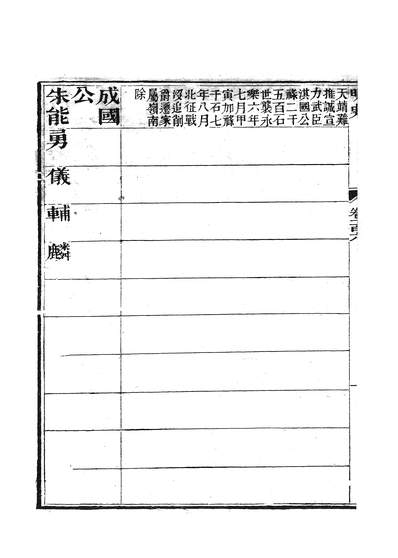 天靖難
推誠宣
力武臣
淇國公
祿二千
五百石
世襲永
樂六年
七月甲
寅加祿
千石七
年八月
北征戰
沒追削
爵遷家
屬嶺南
除
成國
公
朱能 勇 儀 輔 麟